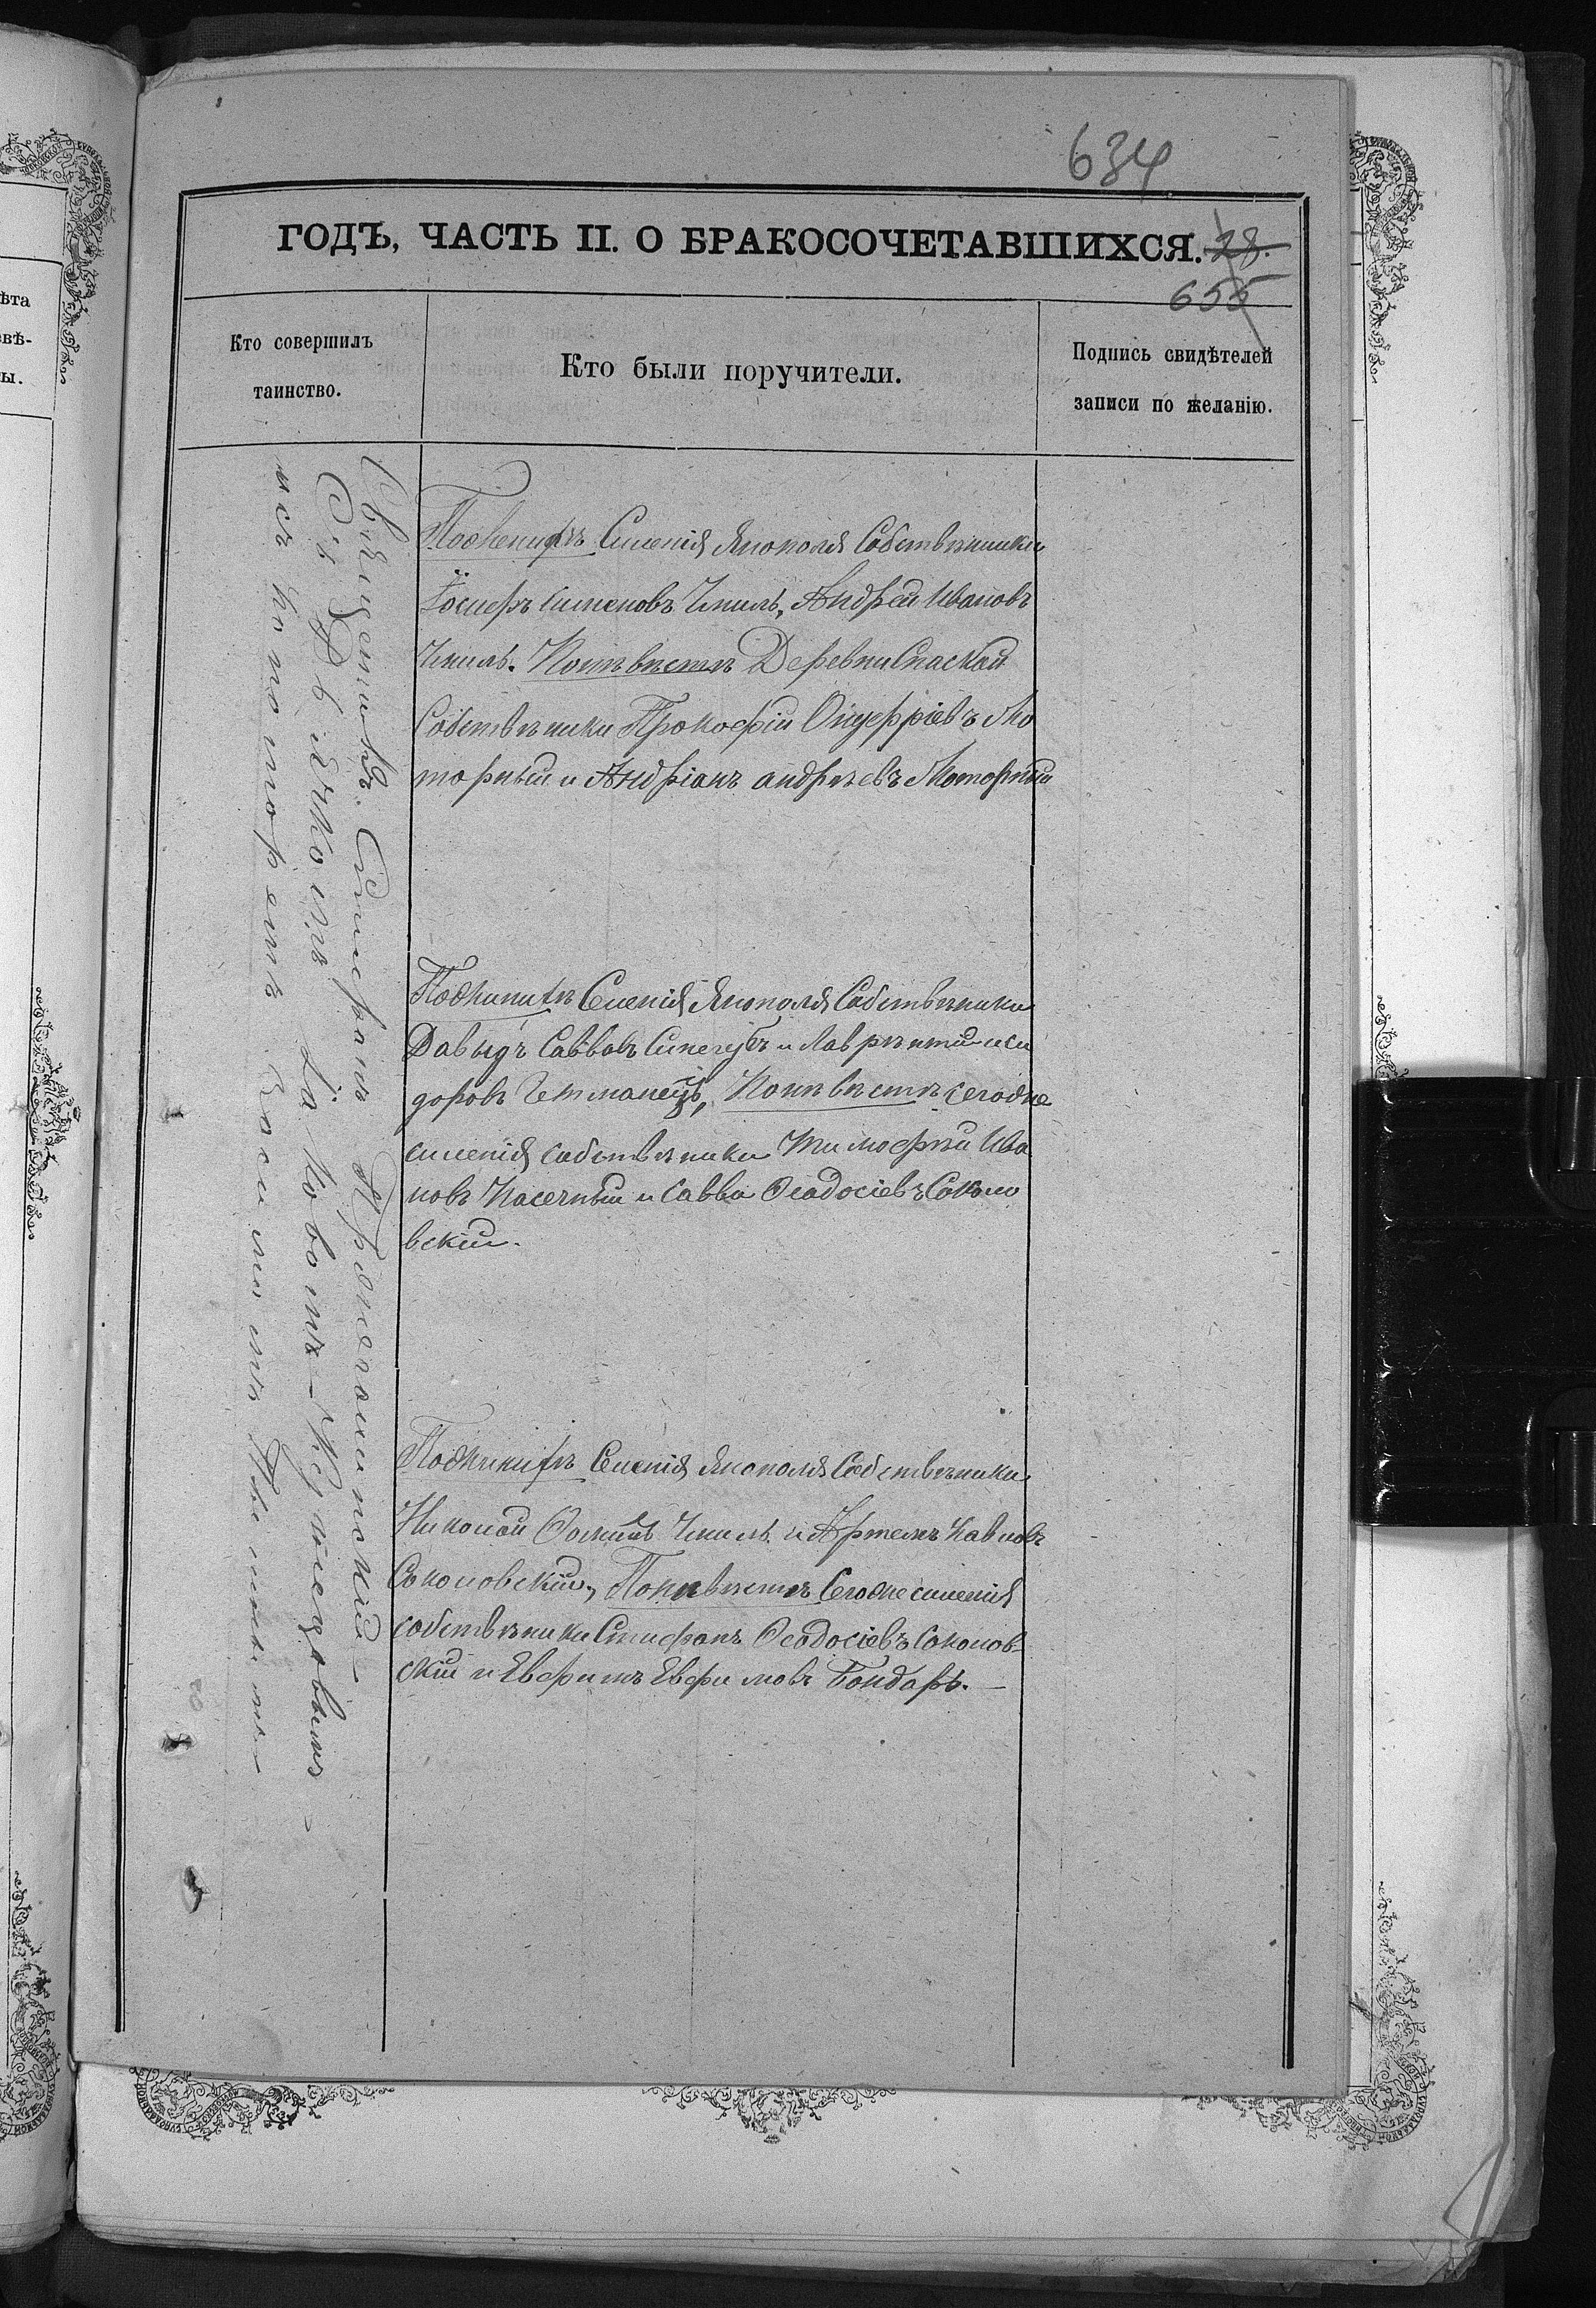 634
ГОДЪ, ЧАСТЬ II. О БРАКОСОЧЕТАВШИХСЯ. 28.
655
Кто совершилъ
таинство.
Кто были поручители.
Подпись свидѣтелей
записи по желанію.
Священникъ Стефанъ
Съ Дьячкомъ Іаковомъ
исъ пономоремъ
Поженихѣ Силенія Янополя Собствѣники
Андрей Ивановъ
Чмиль. Понѣвѣстѣ Деревни Спаской
Собствѣники Прокофій Онуфріевъ Мо
торный и Андріанъ андрѣевъ Моторный
Пожинихѣ Силенія Янополя Собствѣники
Давыдъ Саввовъ Синегубъ и Лаврѣнтій иси
доровъ Гетманецъ, Понѣвѣстѣ сегоже
силенія собствѣники Тимофѣй Ива
новъ Пасечный и Савва Феодосіевъ Соколо
вский.
Пожинихѣ Силенія Янополя Собствѣники
Николай Чмиль и Артемъ Павловъ
Соколовскій, Понѣвѣстѣ Сегоже силенія
собствѣники Стифанъ Феодосіевъ Соколов-
ский и Евфимъ Евфимовъ Бондарь.
ѣта
свѣ-
ы.